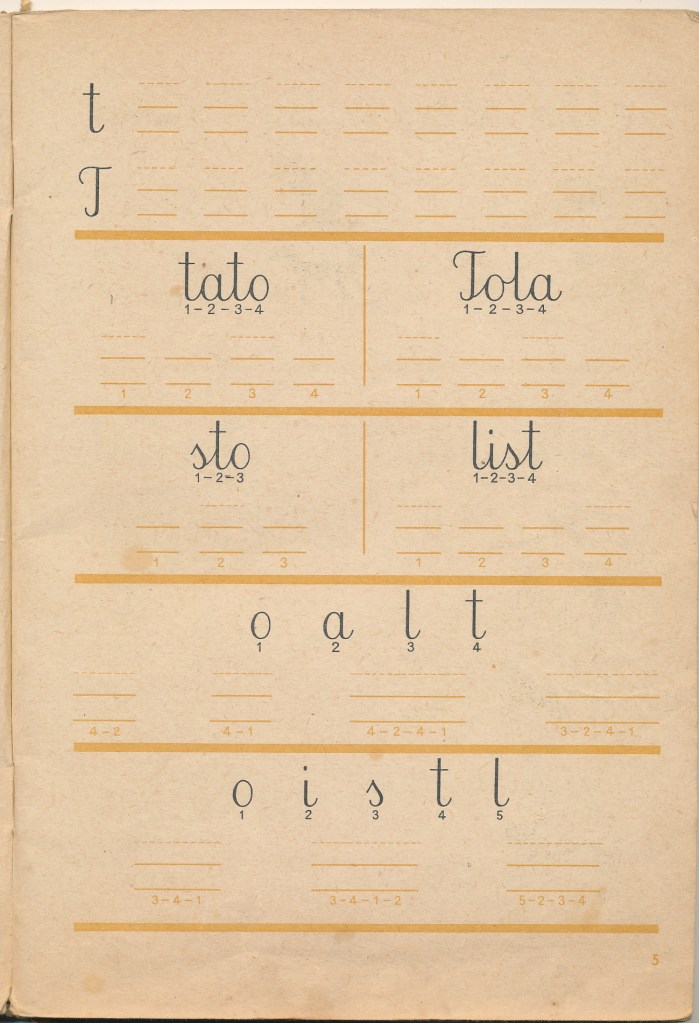 t
T
tato Tola
1-2-3-4 1-2-3-4
1 2 3 4 1 2 3 4
sto list
1-2-3 1-2-3-4
1 2 3 1 2 3 4
o a l t
1 2 3 4
4-2 4-1 4-2-4-1 3-2-4-1
o i s t l
1 2 3 4 5
3-4-1 3-4-1-2 5-2-3-4
5